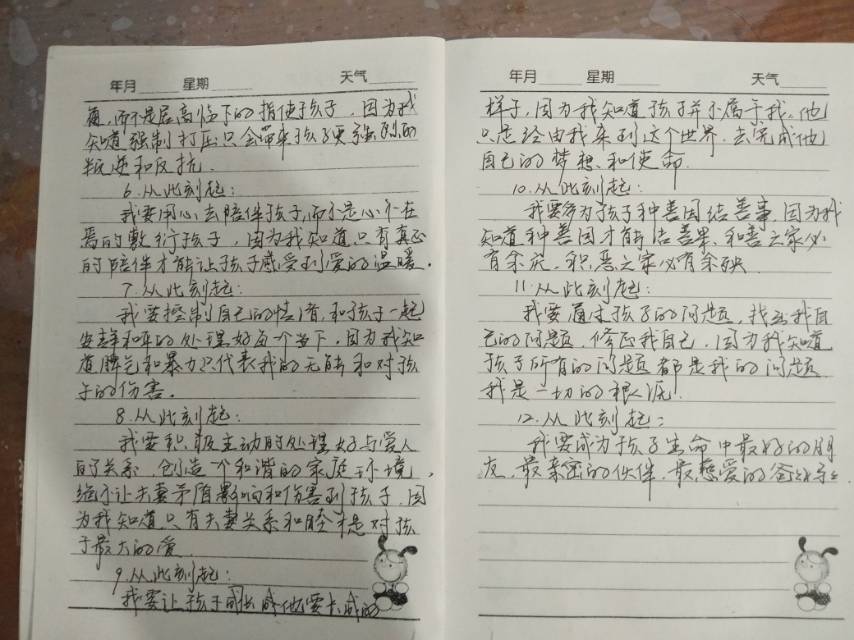 年月 星期 天气
重,而不是居高临下的指使孩子,因为我
知道强制打压只会带来孩子更强烈的
叛逆和反抗.
6.从此刻起:
我要用心去陪伴孩子,而不是心不在
焉的敷衍孩子,因为我知道只有真正
的陪伴才能让孩子感受到爱的温暖.
7.从此刻起:
我要控制自己的情绪,和孩子一起
安静和平的处理好每个当下.因为我知
道脾气和暴力只代表我的无能和对孩
子的伤害.
8.从此刻起:
我要积极主动的处理好与爱人
的关系,创造一个和谐的家庭环境,
绝不让夫妻矛盾影响和伤害到孩子,因
为我知道只有夫妻关系和睦才是对孩
子最大的爱
9.从此刻起:
我要让孩子成长成他要长成的
年月 星期 天气
样子,因为我知道孩子并不属于我,他
只是经由我来到这个世界.去完成他
自己的梦想和使命.
10.从此刻起:
我要多为孩子种善因结善事,因为我
知道种善因才能结善果,和善之家必
有余庆.积恶之家必有余殃
11.从此刻起:
我要通过孩子的问题,找到我自
己的问题,修正我自己,因为我知道
孩子所有的问题都是我的问题
我是一切的根源
12.从此刻起:
我要成为孩子生命中最好的朋
友,最亲密的伙伴,最慈爱的爸妈